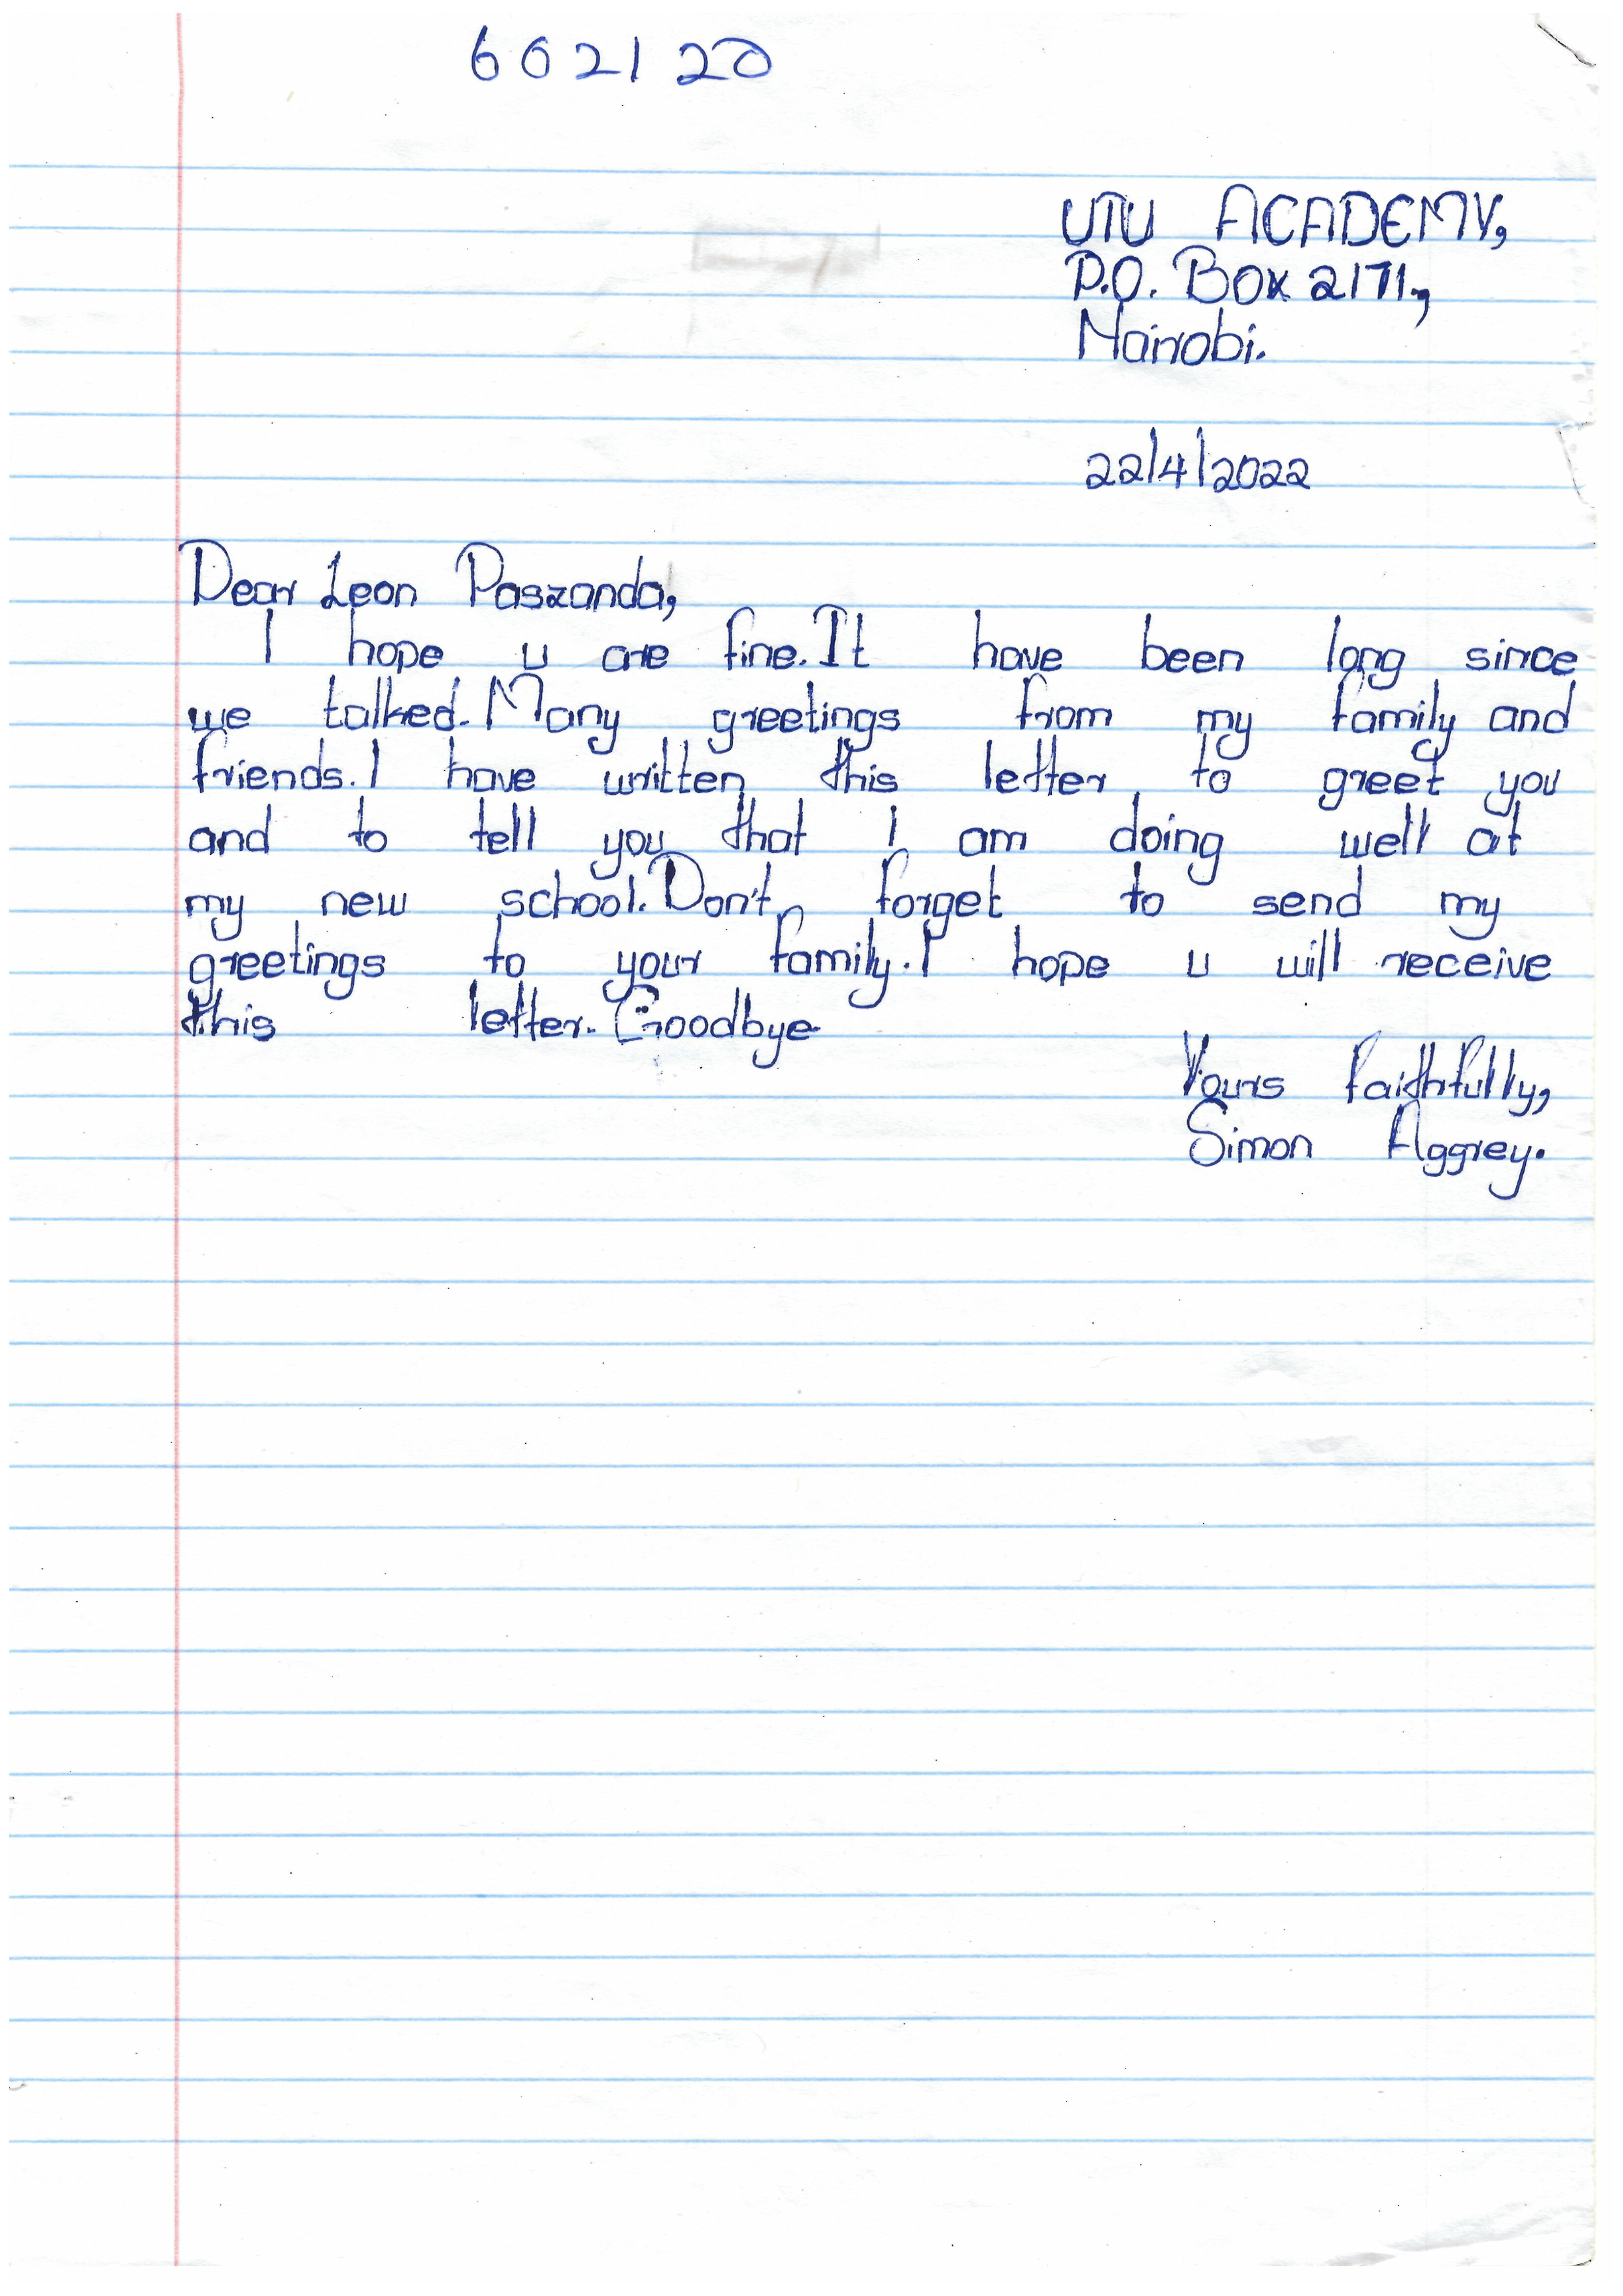 602120
UTU ACADEMY,
P.O. Box 2171,
Nairobi.
22/4/2022
Dear Leon Paszanda,
I hope u are fine. It have been long since
we talked. Many greetings from my family and
friends. I have written this letter to greet you
and to tell you that I am doing well at
my new school. Don't forget to send my
greetings to your family. I hope u will receive
this letter. Goodbye
Yours faithfully,
Simon Aggrey.